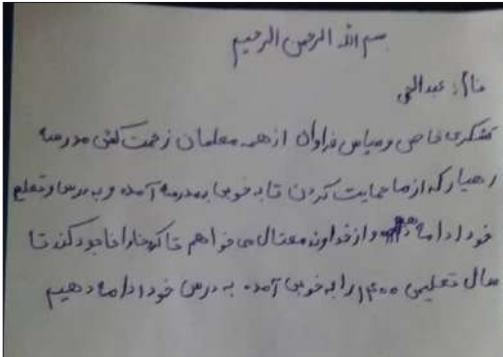 بسم الله الرحمن الرحیم
نام: عبدالحی
تشکری خاص و سپاس فراوان از همه معلمان زحمت کش مدرسه
رهیار که از ما حمایت کردن تا به خوبی به مدرسه آمده و به درس و تعلیم
خود ادامه دهیم و از خداوند متعال می خواهم تا کرونا را نابود کند تا
سال تعلیمی ۱۴۰۰ را به خوبی آمده به درس خود ادامه دهیم